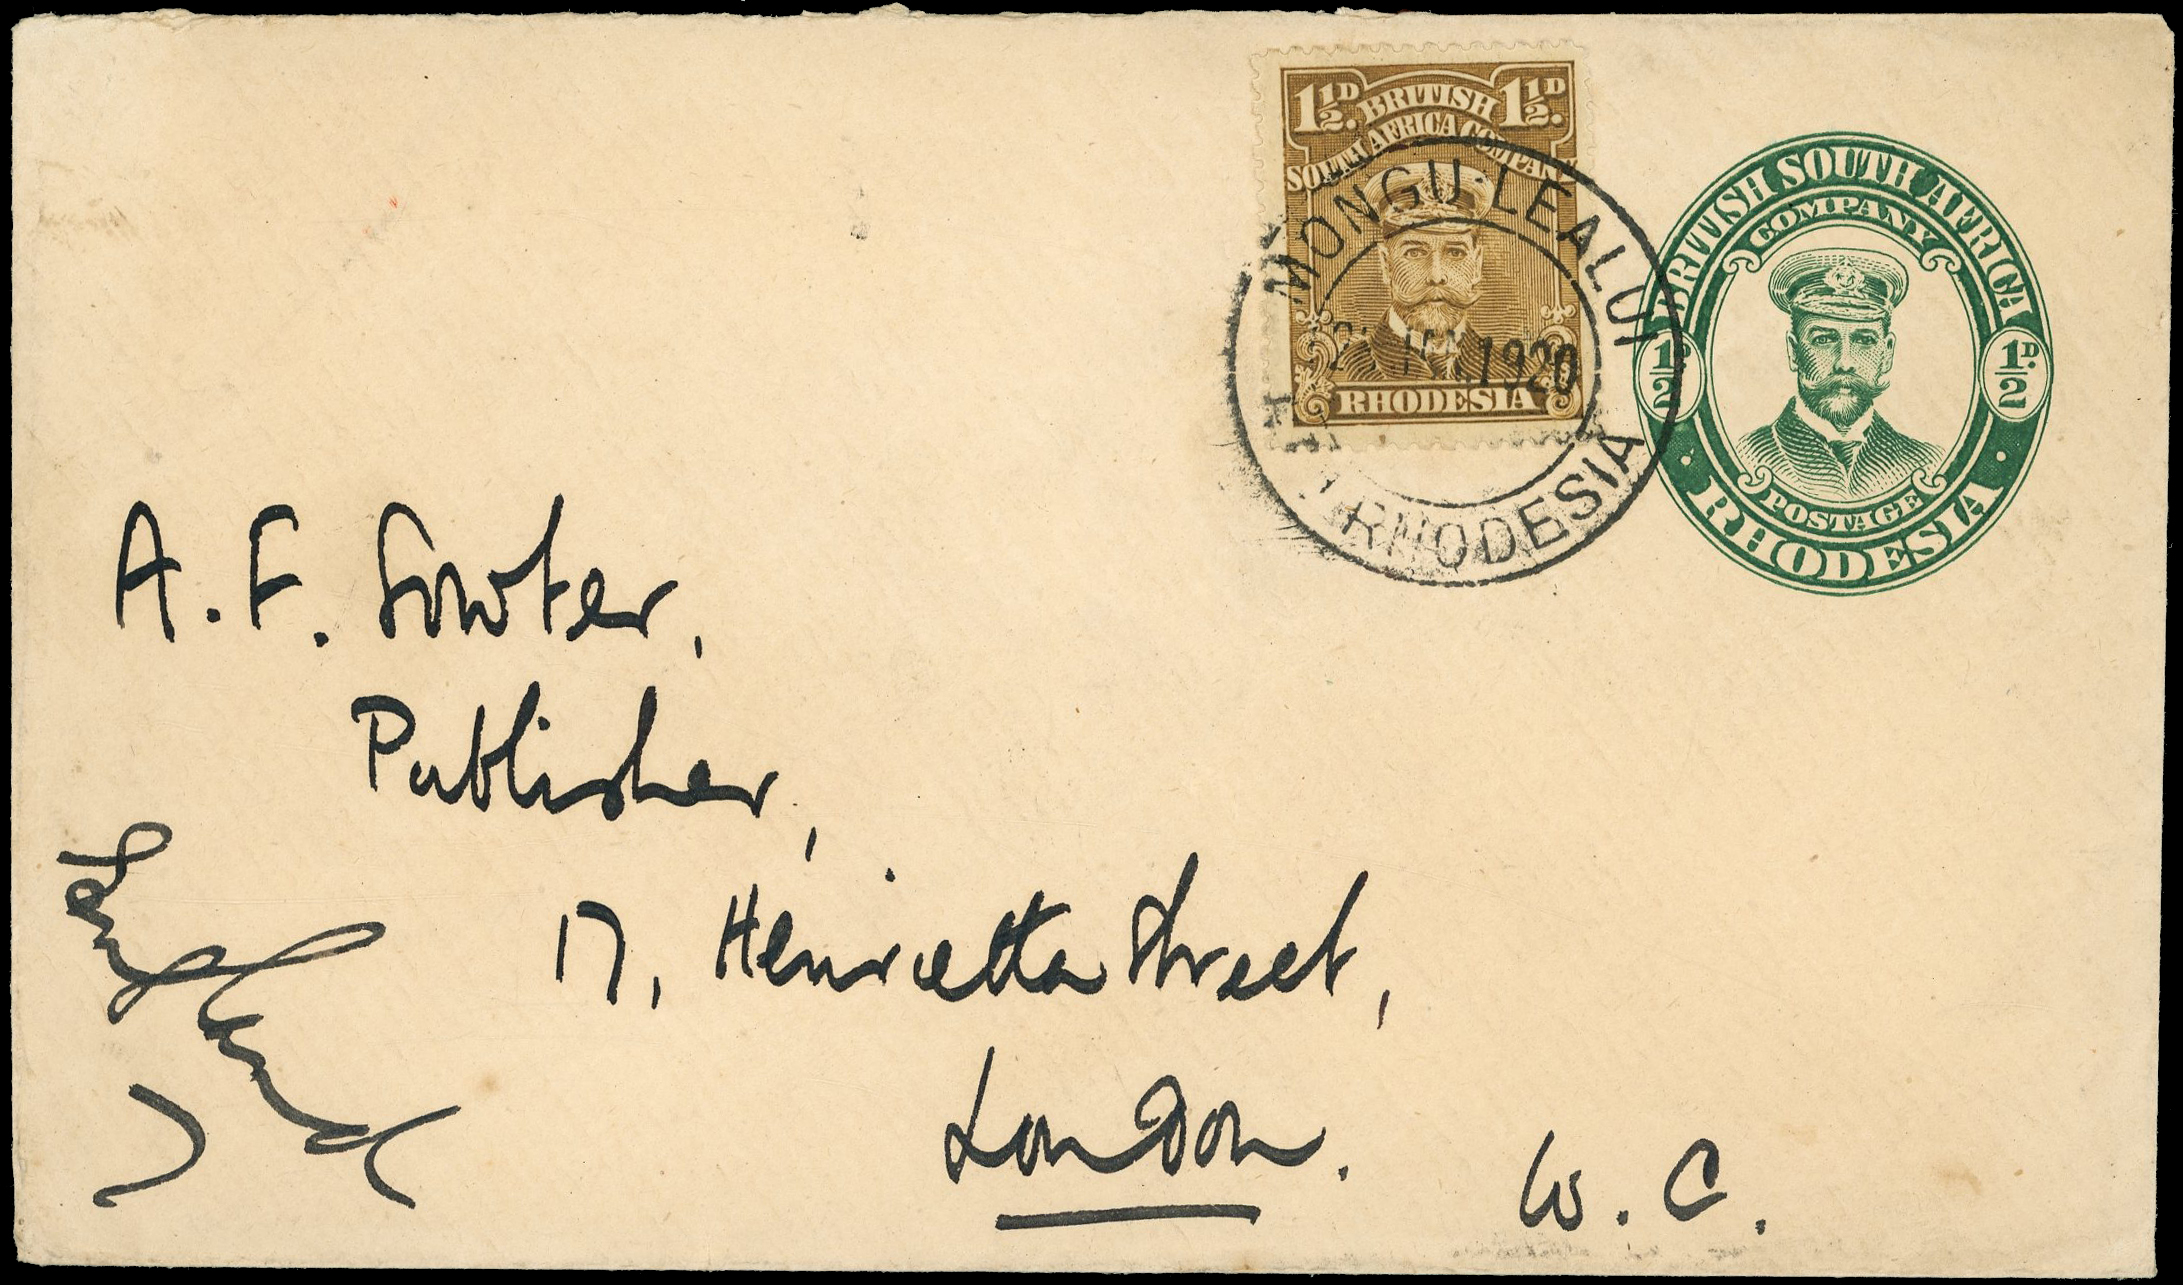 1½D. BRITISH 1½D.
SOUTH AFRICA COMPANY
RHODESIA
MONGU-LEALUI
1920
RHODESIA
BRITISH SOUTH AFRICA
COMPANY
½D. ½D.
POSTAGE
RHODESIA
A. F. Sowter,
Publisher,
17, Henrietta Street,
London.
W. C.